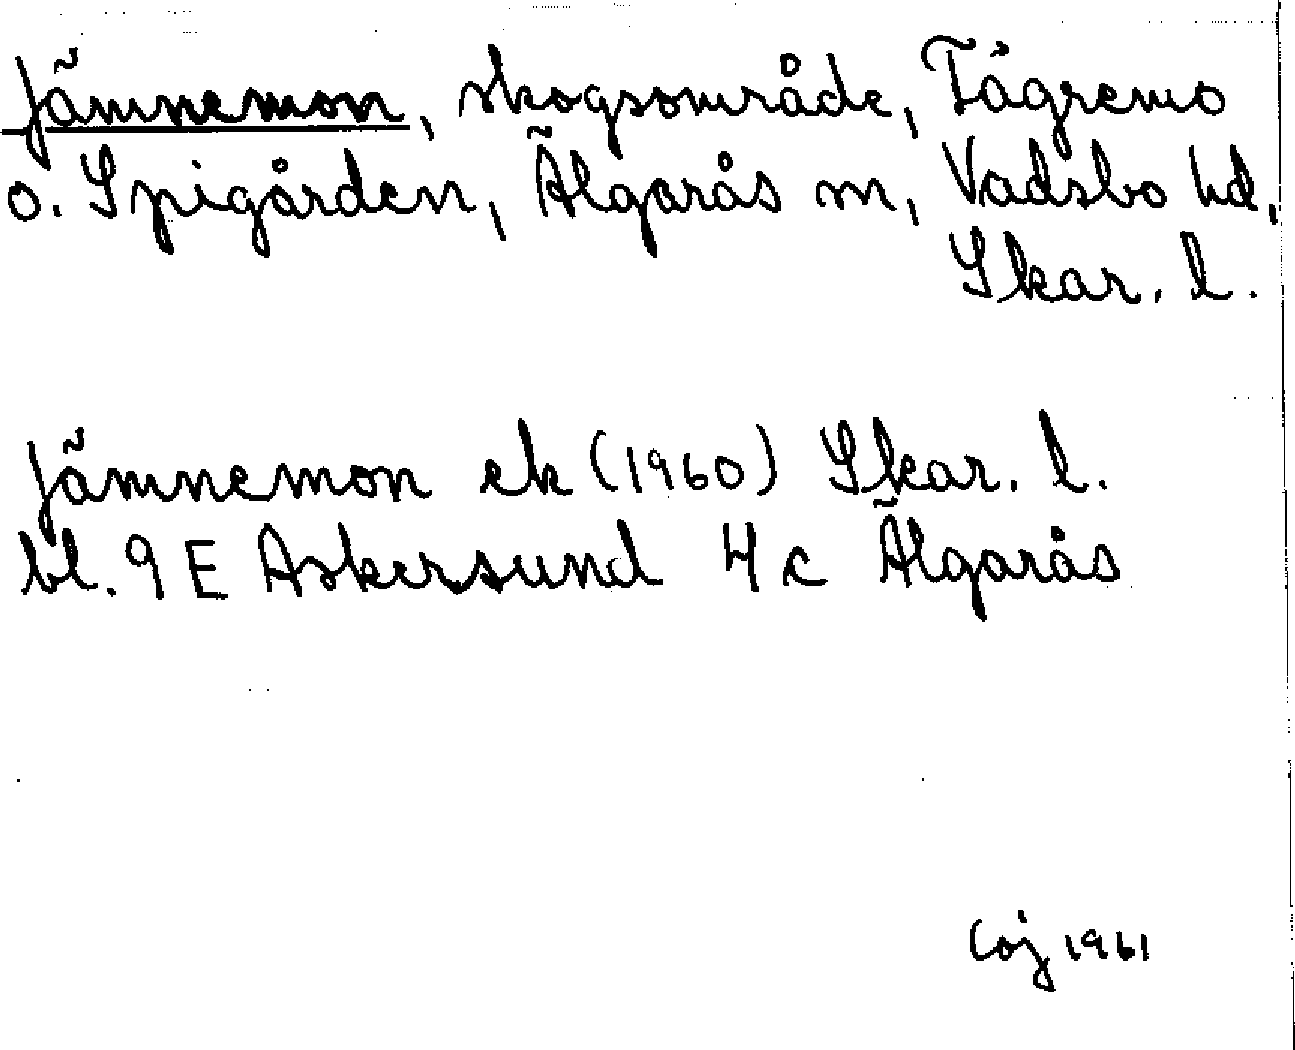 Jämnemon, skogsområde, Tågremo
o. Spigården, Älgarås sn, Vadsbo hd,
Skar. l.
Jämnemon ek (1960) Skar. l.
bl. 9E Askersund 4c Älgarås
Coj 1961